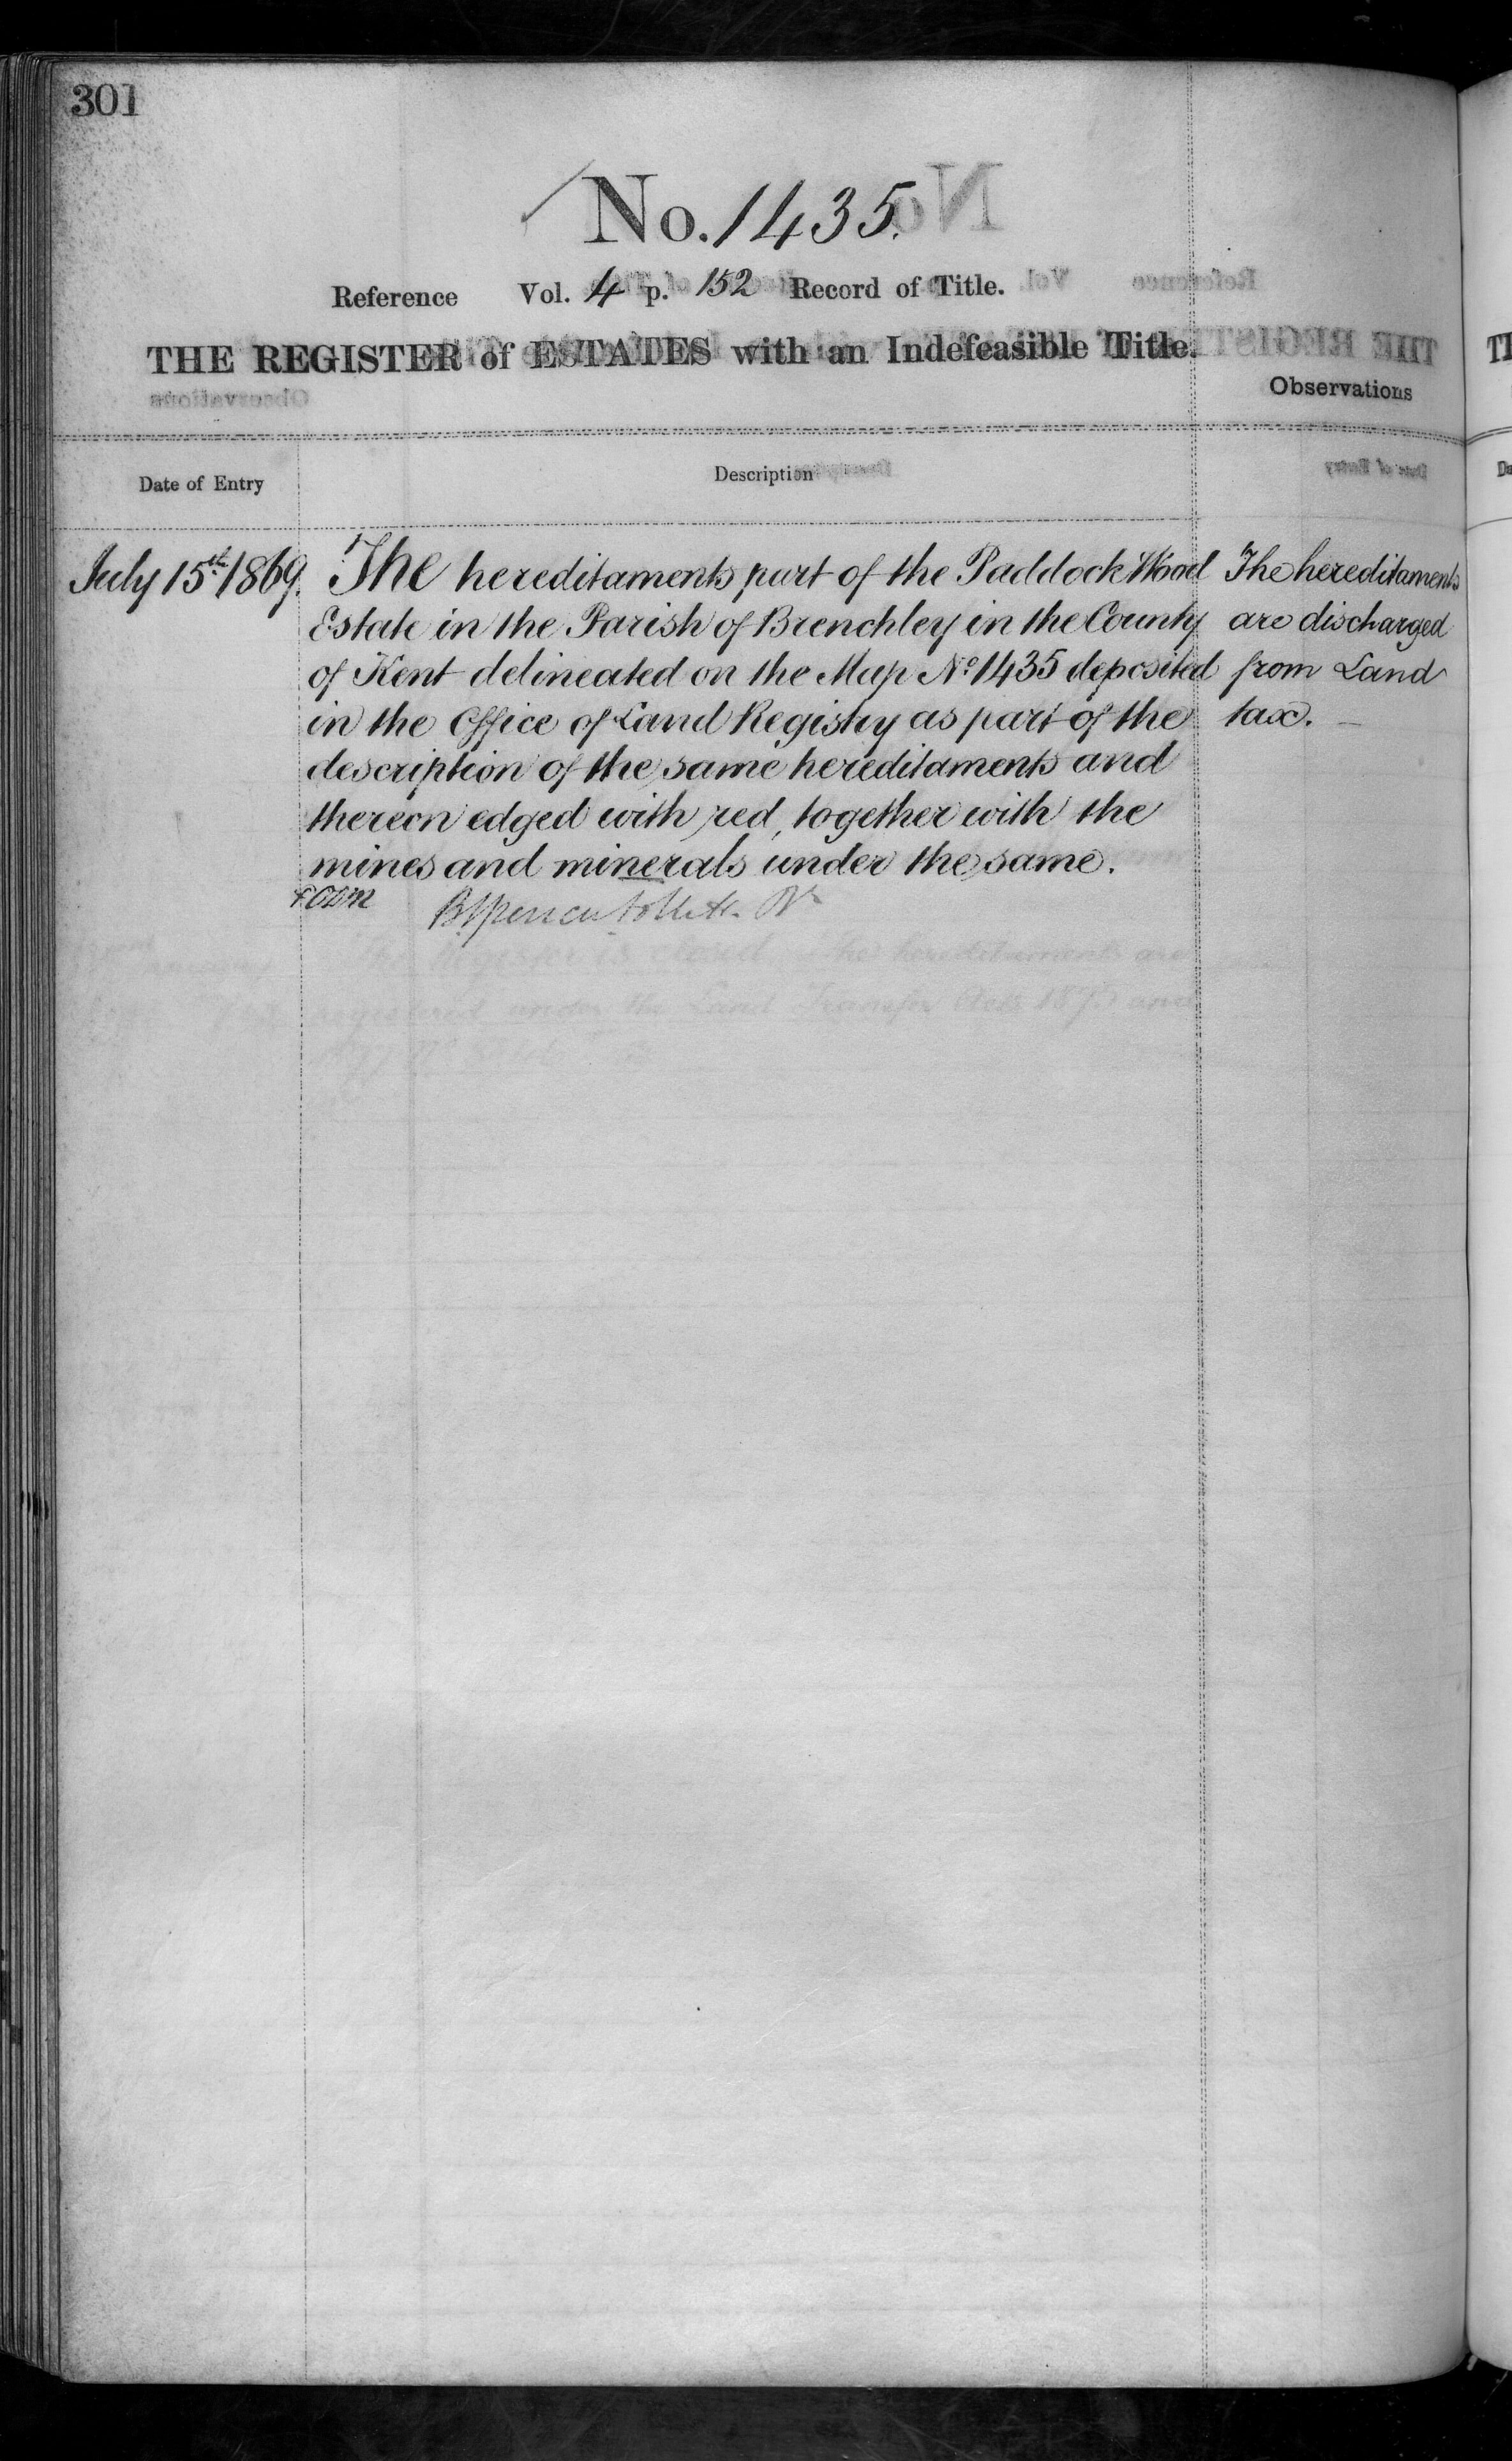 301
No. 1435.
Reference Vol. 4 p. 152 Record of Title.
THE REGISTER of ESTATES with an Indefeasible Title.
Observations
Date of Entry
Description
July 15th 1869.
The hereditaments part of the Paddock Wood
Estate in the Parish of Brenchley in the County
of Kent delineated on the Map No 1435 deposited
in the Office of Land Registry as part of the
description of the same hereditaments and
thereon edged with red, together with the
mines and minerals under the same.
The hereditaments
are discharged
from Land
tax.
The Register is closed. The hereditaments are
registered under the Land Transfer Acts 1875 and